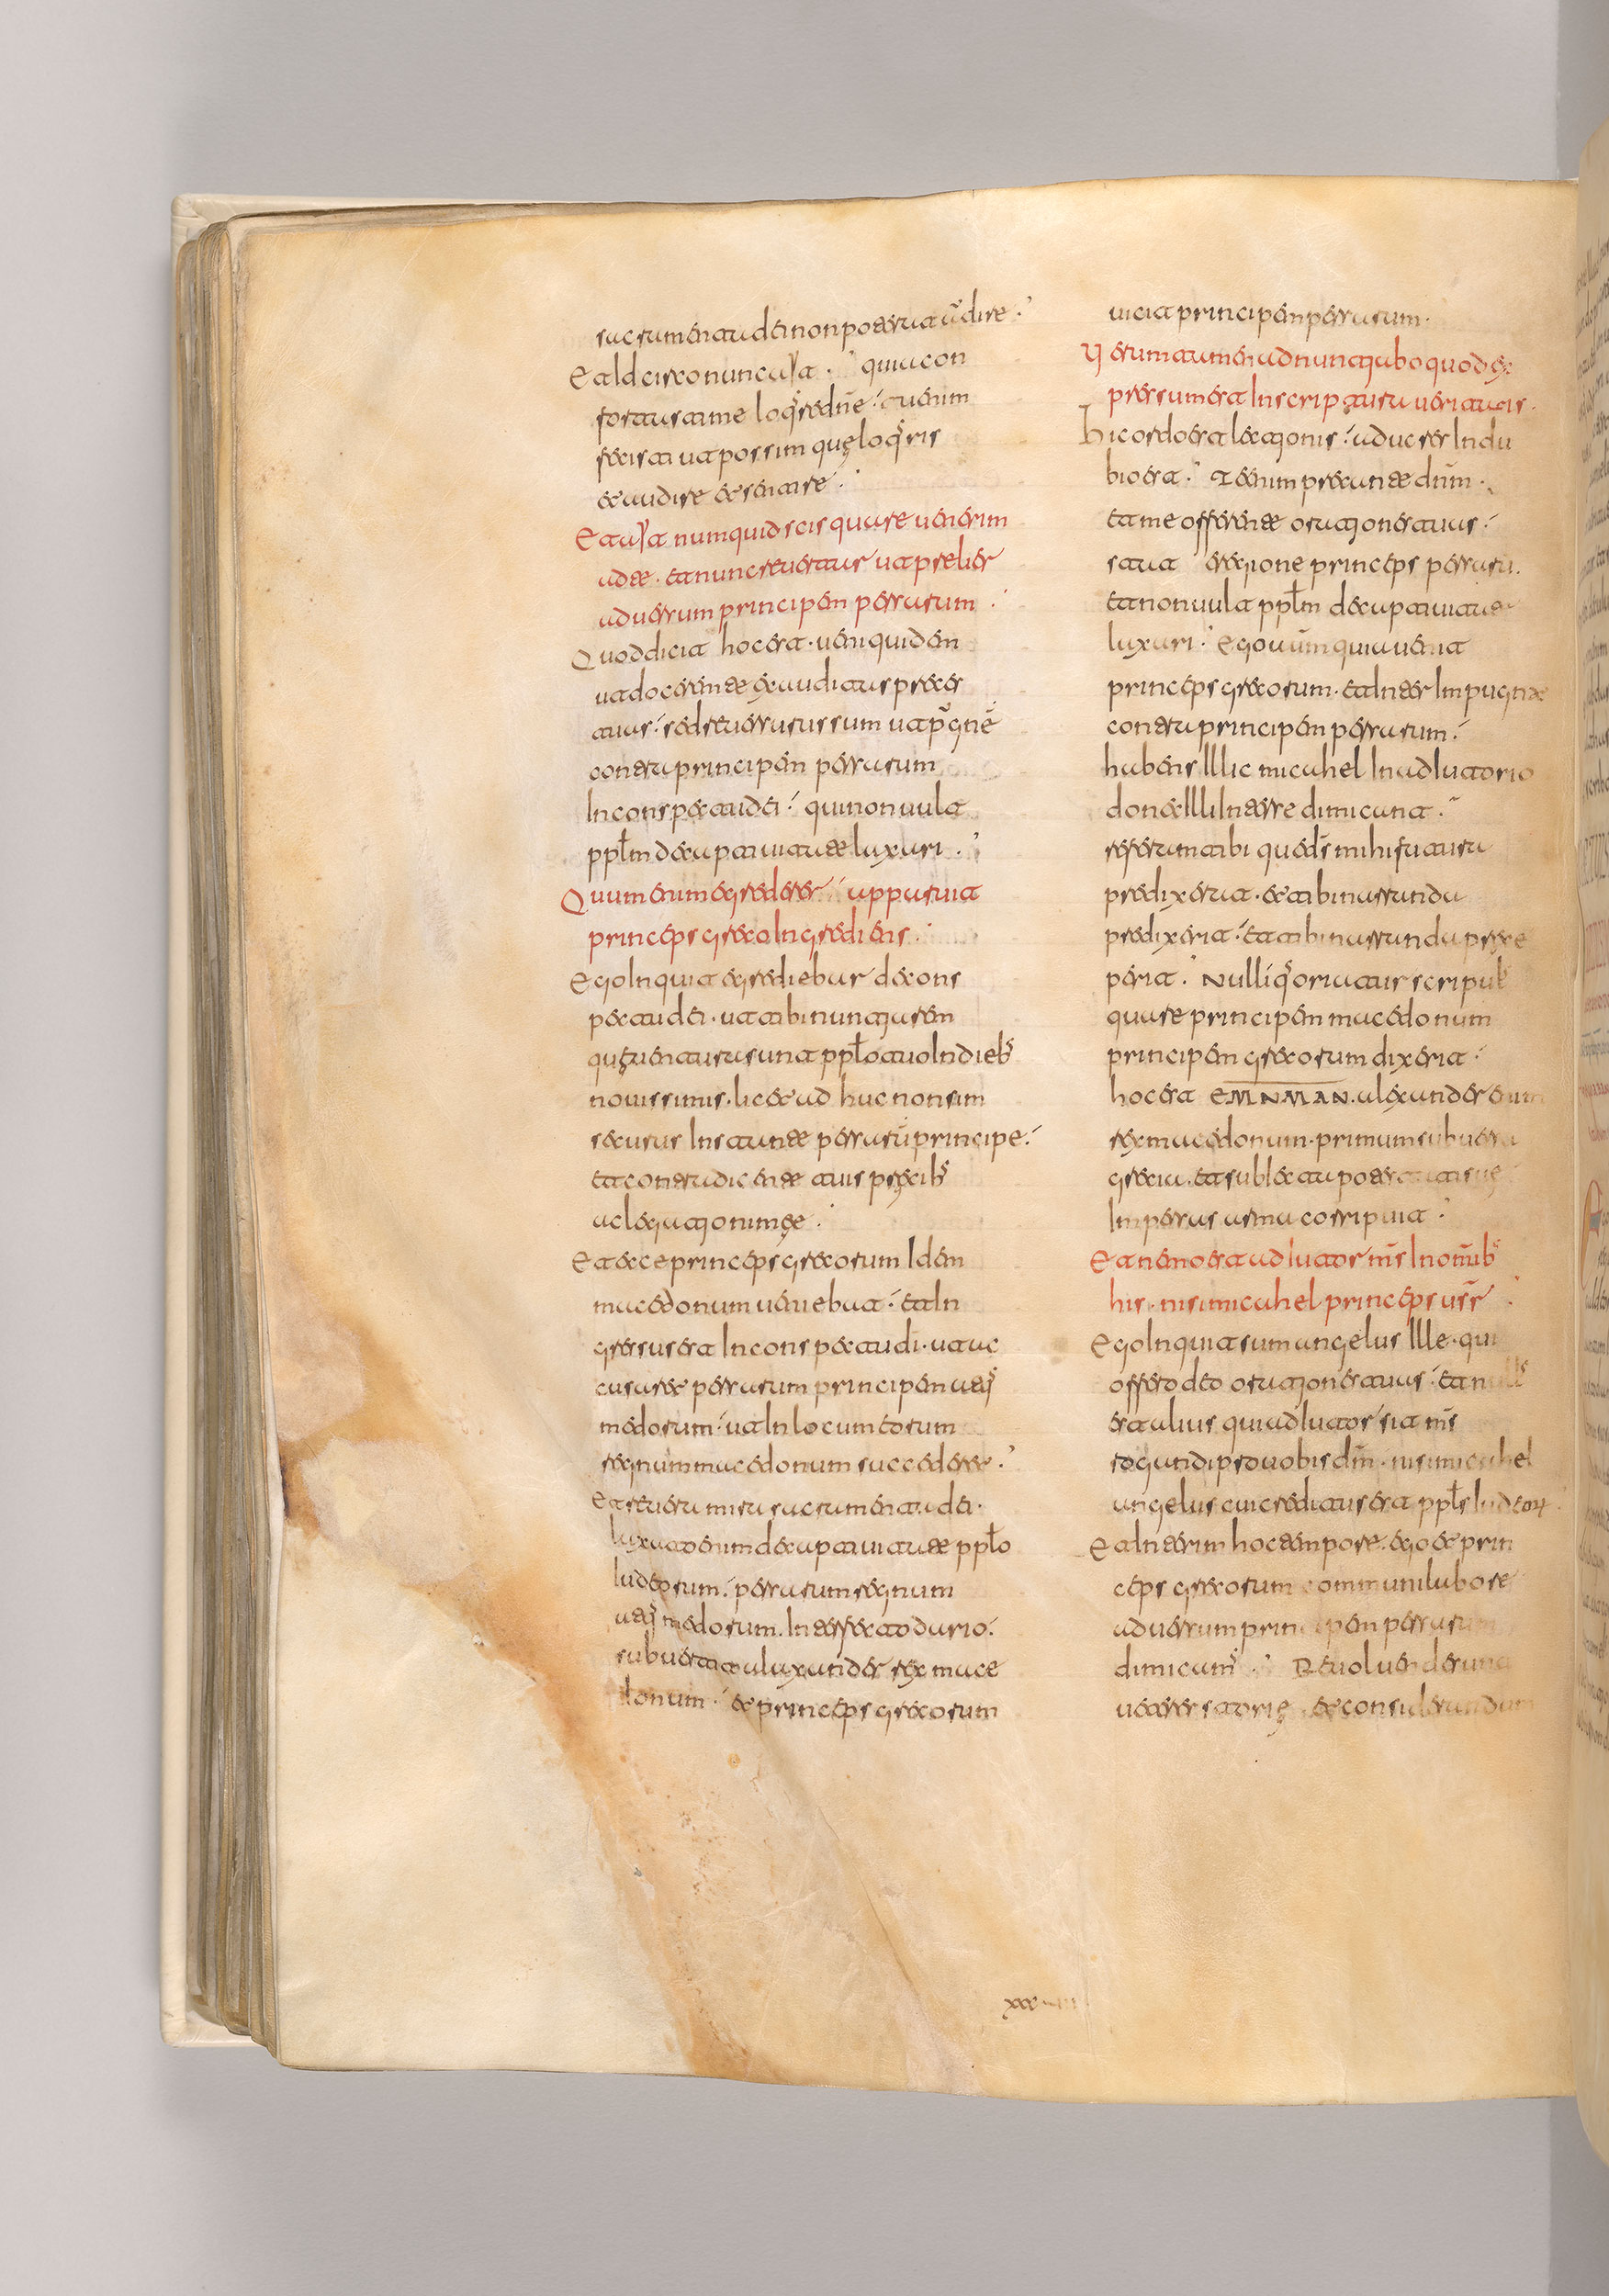 sacramenta dei non poterat audire.
Et Idcirco nunc ayt. quia con
fortasti me loqre dne: tu enim
fecisti ut possim quę loqris
et audire et sentire.
Et ayt numquid scis quare uenerim
ad te. et nunc reuertar ut prelier
aduersum principem persarum.
Quod dicit hoc est. ueni quidem
ut docerem te exauditas preces
tuas: sed reuersurus sum ut pugnē
contra principem persarum
In conspectu dei: qui non uult
pplm de captiuitate laxari.
Quum enim egrederer: apparuit
princeps grecorum Ingrediens.
Ego Inquit egrediebar de cons
pectu dei. ut tibi nuntiarem
quę uentura sunt pplo tuo In dieb
nouissimis. licet adhuc non sim
securus Instante persarū principe:
et contradicente tuis precib
ac legationi meę.
Et ecce princeps grecorum Idem
macedonum ueniebat: et In
gressus est In conspectu di. ut ac
cusaret persarum principem atq
medorum: ut In locum eorum
regnum macedonum succederet.
Et reuera mira sacramenta dei.
laxato enim de captiuitate pplo
Iudeorum: persarum regnum
atq medorum. Interfecto dario.
subuertit alaxander rex mace
donum: et princeps grecorum
uicit principem persarum.
Uerumtamen adnuntiabo quod ex
pressum est In scriptura ueritatis.
Hic ordo est lectionis: aduc res In du
bio est. Te enim precante dūm.
et me offerente orationes tuas:
stat e regione princeps persaru.
et non uult pplm de captiuitate
laxari. Ego aūm quia uenit
princeps grecorum. et Inter Impugnat
contra principem persarum:
habens Illic micahel In adIutorio
donec Illi Inter se dimicant.
referam tibi que ds mihi futura
predixerat. et tibi narranda
predixerit: et tibi narranda prece
perit. Nulliq oriatur scripul
quare principem macedonum
principem grecorum dixerit:
hoc est EMNMAN. alexander enim
rex macedonum. primum subuersa
grecia. et sublecta potestati suę
Imperus asma corripuit.
Et nemo est adIutor ms In omib
his. nisi micahel princeps ūsr
Ego Inquit sum angelus Ille. qui
offero deo orationes tuas: et nulls
est alius qui adIutor sit ms
rogandi pro uobis dm. nisi micahel
angelus cui creditus est ppls Iudeorum
Et Interim hoc tempore. ego et prin
ceps grecorum communi labore
aduersum principem persarum
dimicam. Reuoluenda sunt
ueteres storię et considerandum
xxx